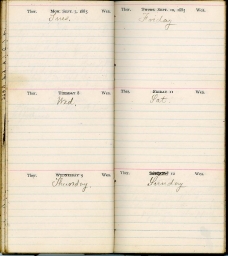 Ther. Mon. Sept. 7, 1885 Wea.
Tues.
Ther. Tuesday 8 Wea.
Wed.
Ther. Wednesday 9 Wea.
Thursday
Ther. Thurs. Sept. 10, 1885 Wea.
Friday
Ther. Friday 11 Wea.
Sat
Ther. 12 Wea.
Sunday